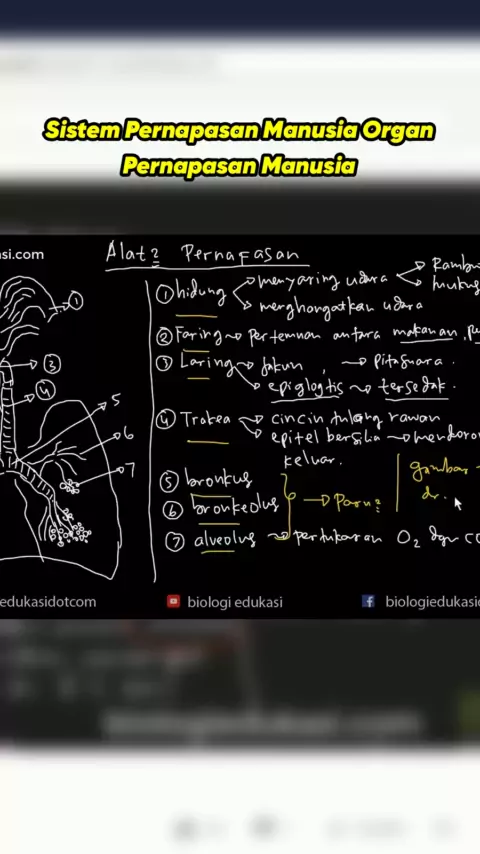 Sistem Pernapasan Manusia Organ
Pernapasan Manusia
si.com
Alat2 Pernafasan
① hidung
menyaring udara
Rambu
mukus
menghangatkan udara
② Faring → pertemuan antara makanan,
③ Laring
jakun, → Pita suara.
epiglogtis → tersedak.
④ Trakea → cincin tulang rawan
epitel bersilia → mendoron
keluar.
⑤ bronkus
⑥ bronkeolus
→ Paru2
gambar
dr.
⑦ alveolus → pertukaran O2 dgn CO
1
3
4
5
6
7
edukasidotcom
biologi edukasi
biologiedukasi